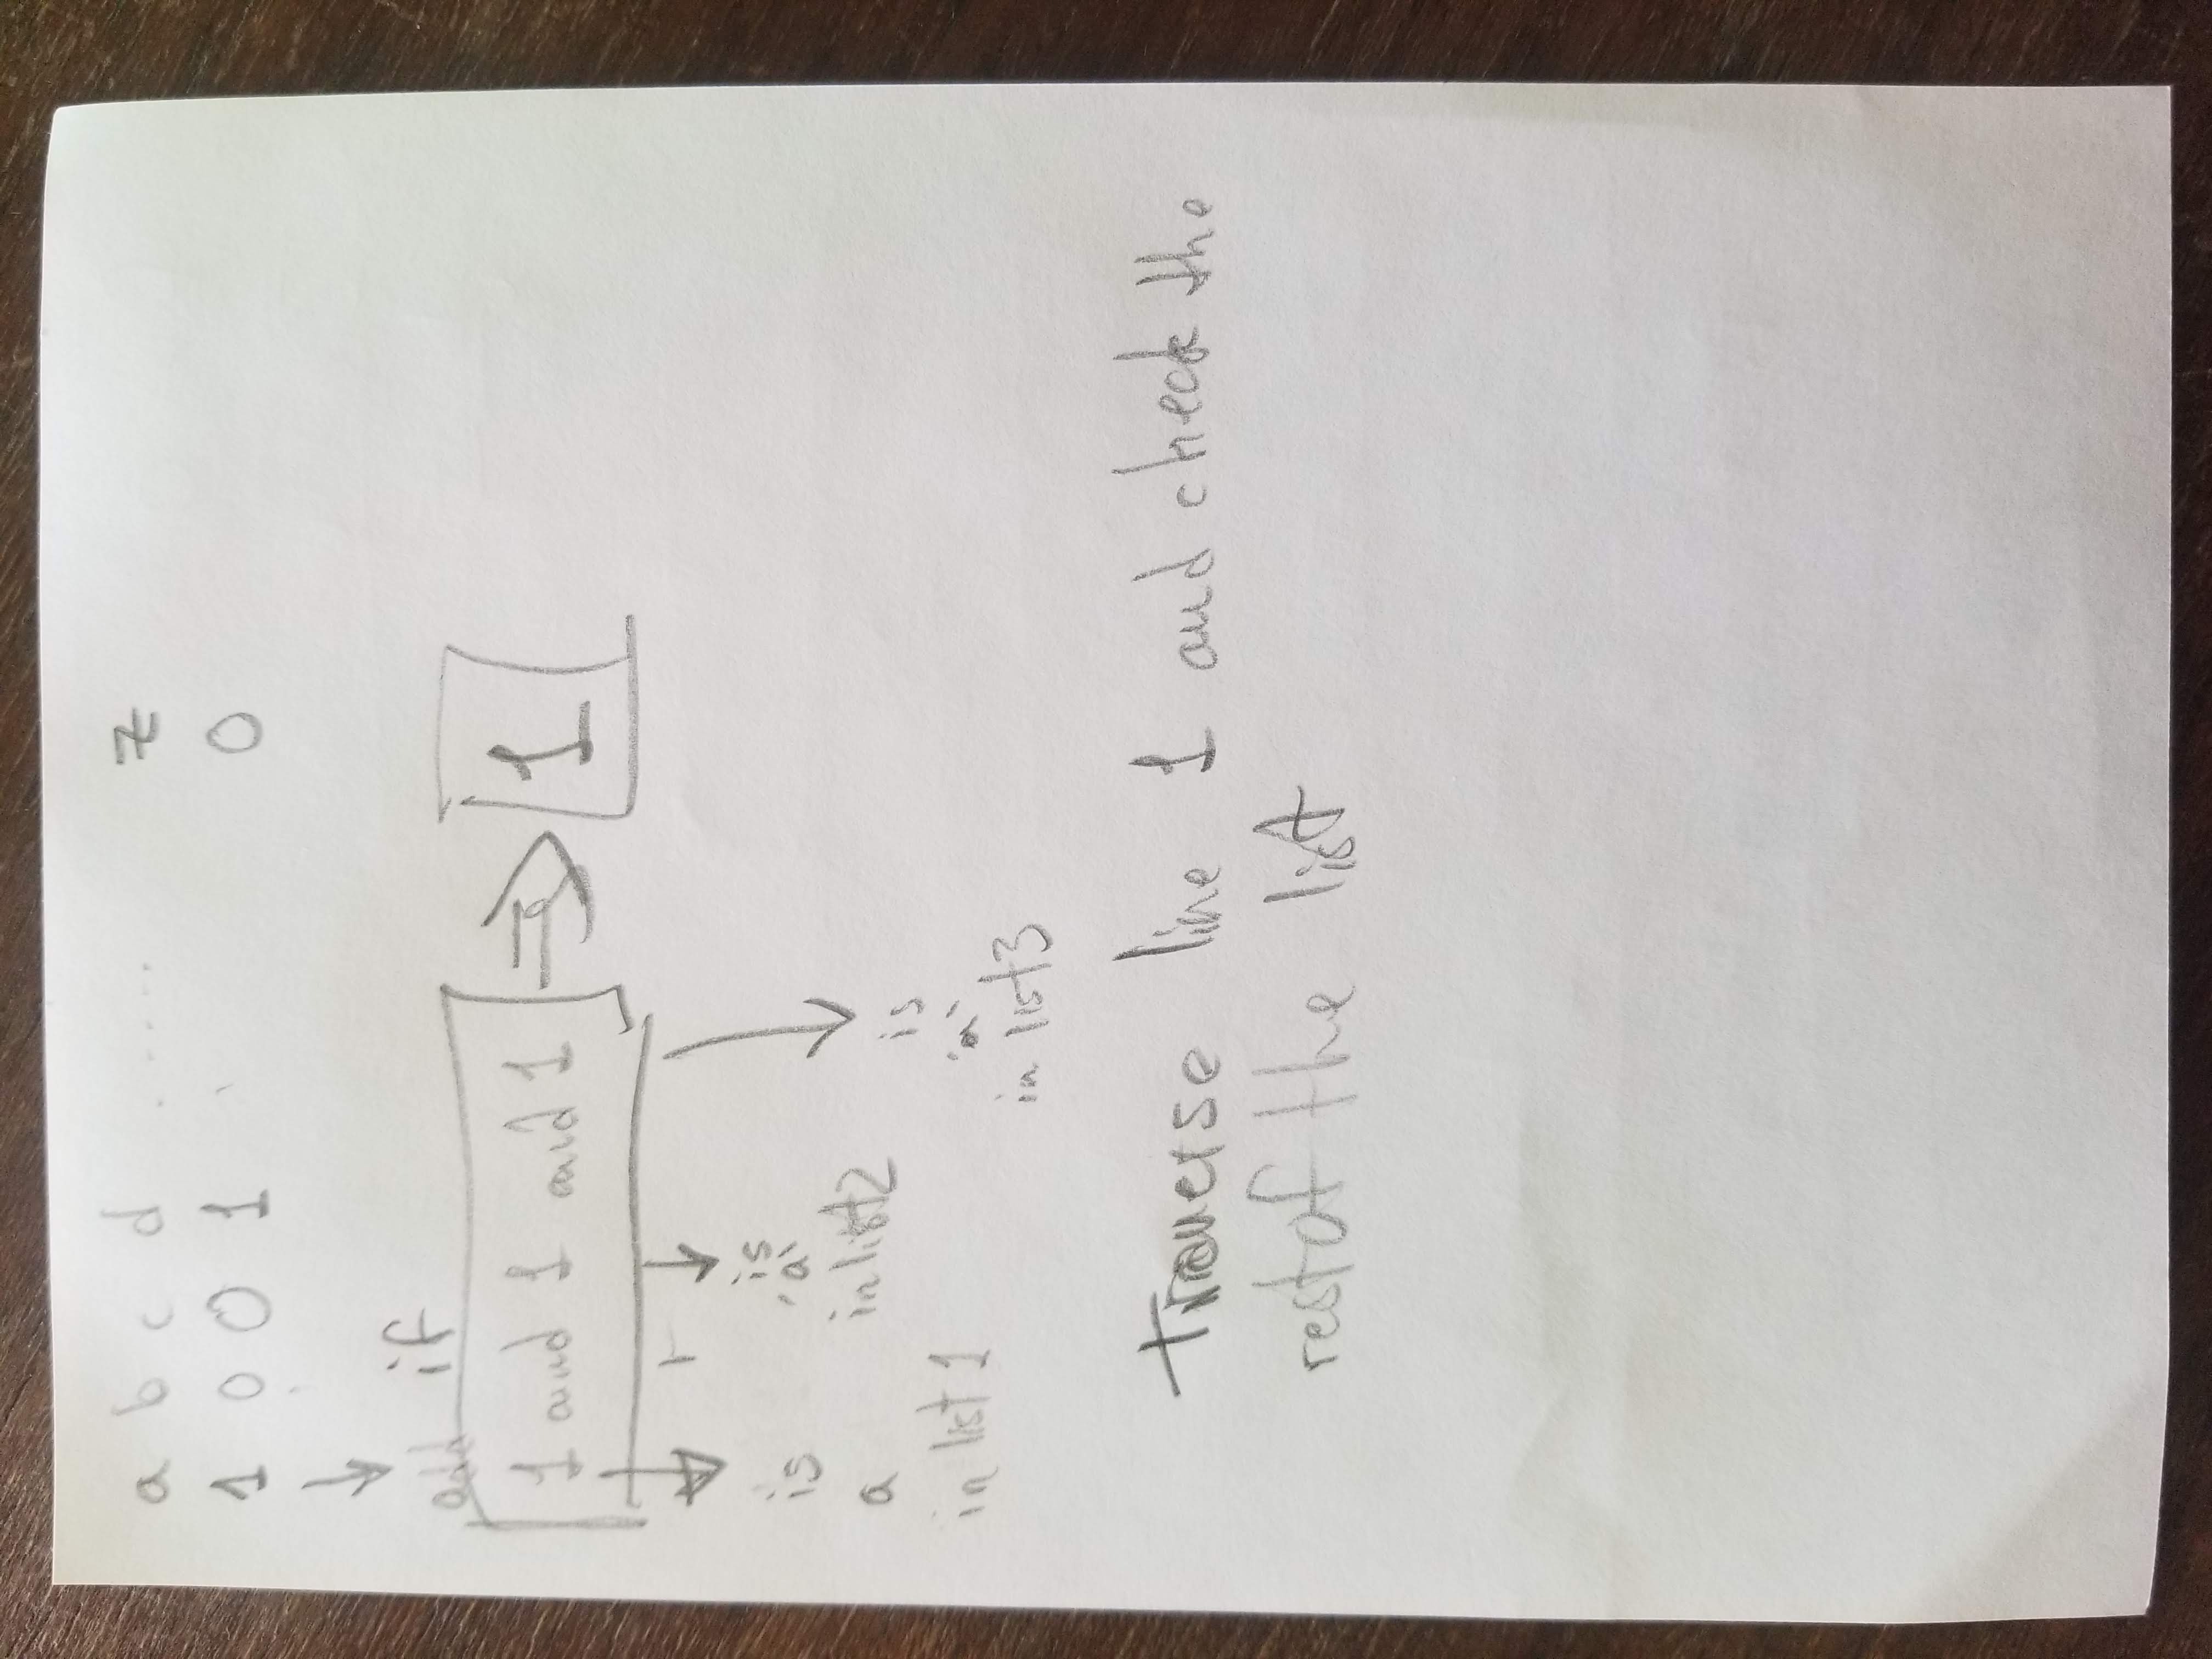 a b c d ...... z
1 0 0 1 0
add if
1 and 1 and 1 ⇒ 1
is
a
in list 1
is
'a'
in list2
is
'a'
in list3
traverse line 1 and check the
rest of the list